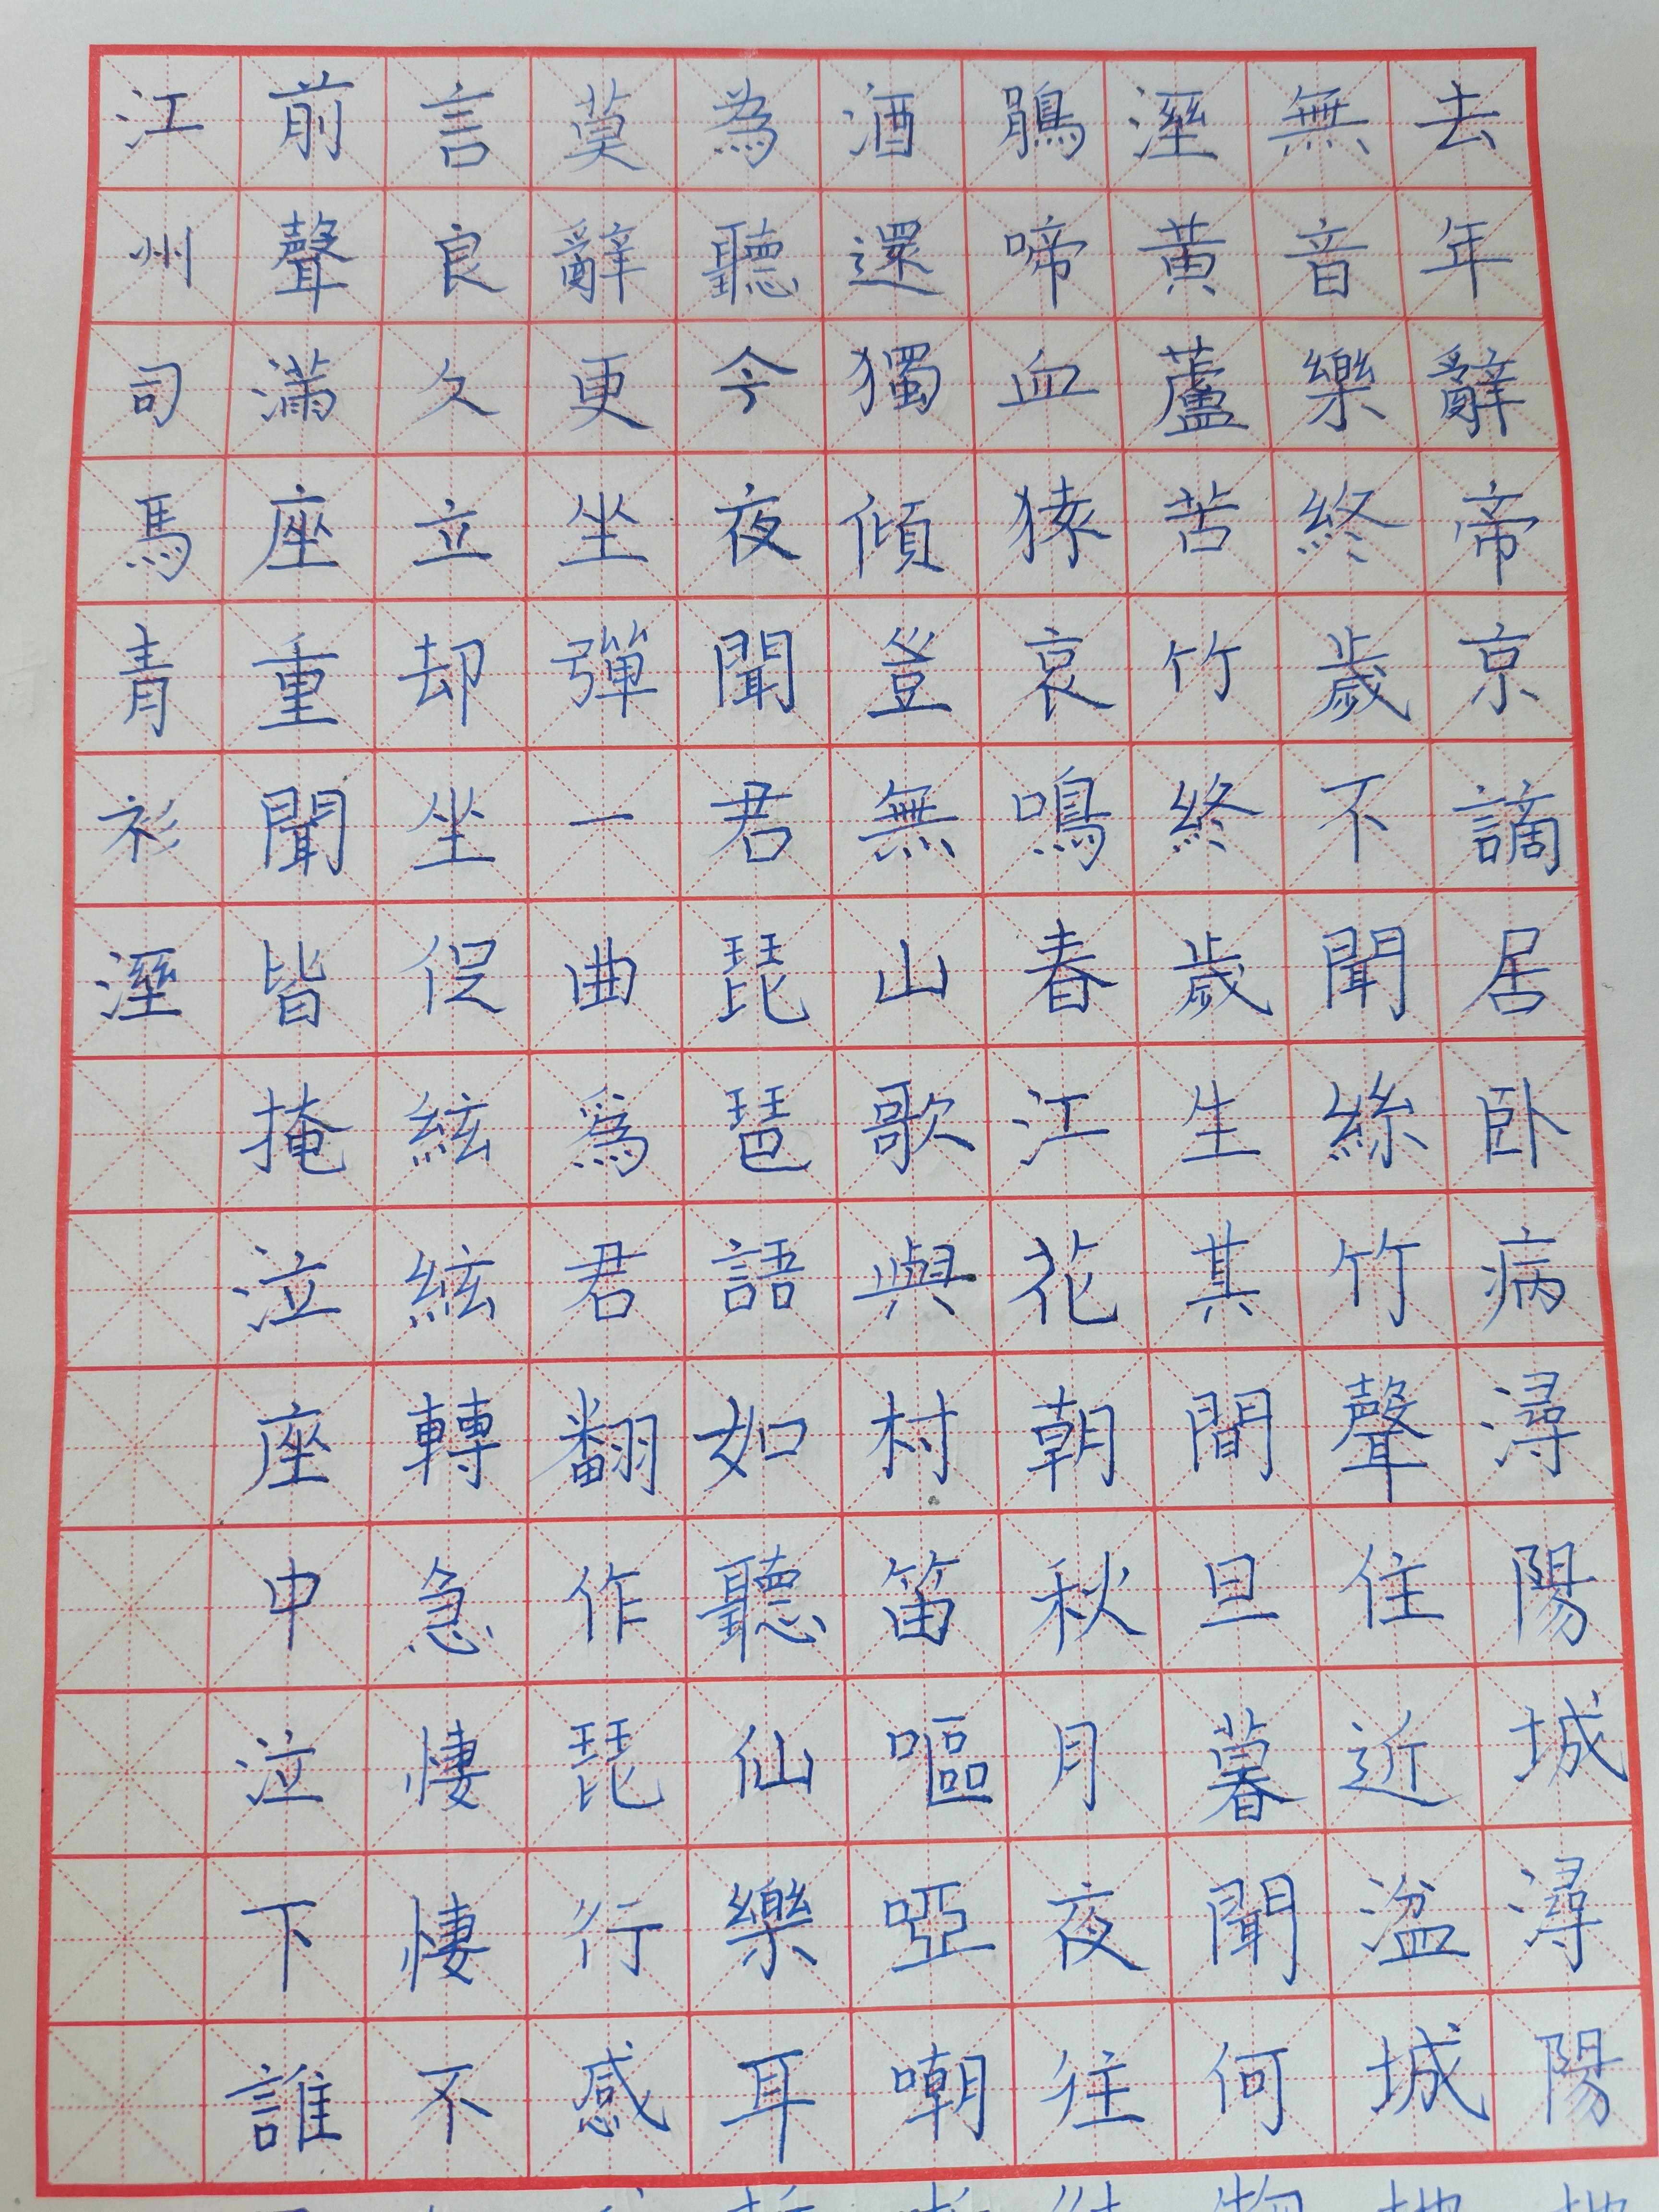 去年辭帝京謫居卧病潯陽城潯陽
無音樂終歲不聞絲竹聲住近湓城
溼黃蘆苦竹終歲生其間旦暮聞何
鵑啼血猿哀鳴春江花朝秋月夜往
酒還獨傾豈無山歌與村笛嘔啞嘲
為聽今夜聞君琵琶語如聽仙樂耳
莫辭更坐彈一曲爲君翻作琵行感
言良久立却坐促絃絃轉急悽悽不
前聲滿座重聞皆掩泣座中泣下誰
江州司馬青衫溼